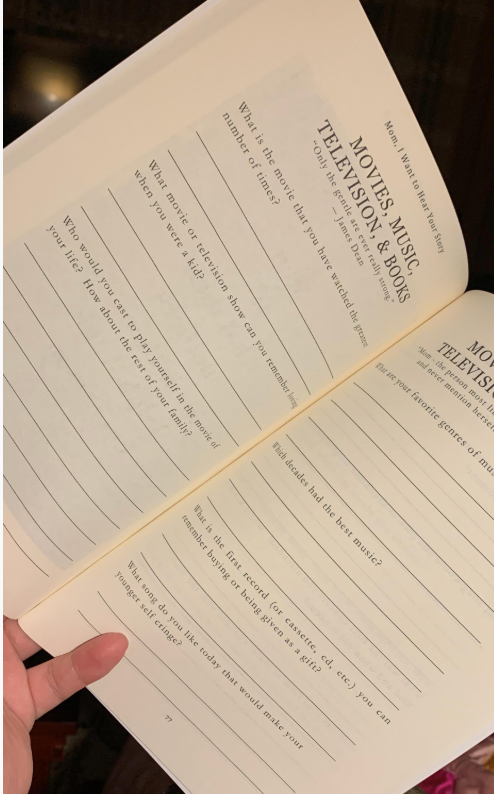 Mom, I Want to Hear Your Story
MOVIES, MUSIC,
TELEVISION, & BOOKS
"Only the gentle are ever really strong."
— James Dean
What is the movie that you have watched the greatest
number of times?
What movie or television show can you remember loving
when you were a kid?
Who would you cast to play yourself in the movie of
your life? How about the rest of your family?
MOV
TELEVISIO
"Mom - the person most li
and never mention hersel
What are your favorite genres of mu
Which decades had the best music?
What is the first record (or cassette, cd, etc.) you can
remember buying or being given as a gift?
What song do you like today that would make your
younger self cringe?
77